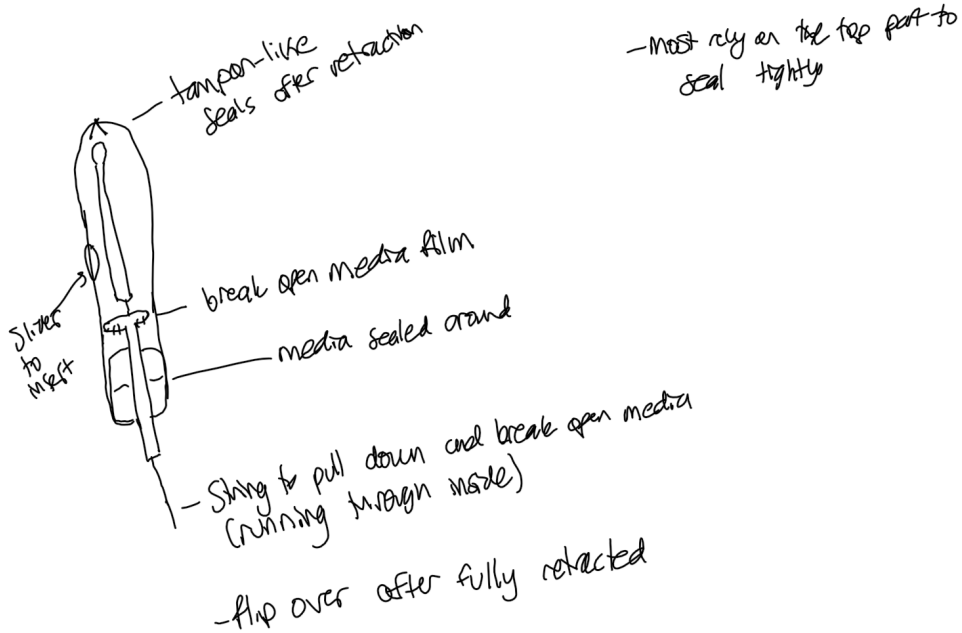 tampon-like
seals after retraction
-most rely on the top part to
seal tightly
break open media film
slider
to
insert
media sealed around
- string to pull down and break open media
(running through inside)
-flip over after fully retracted